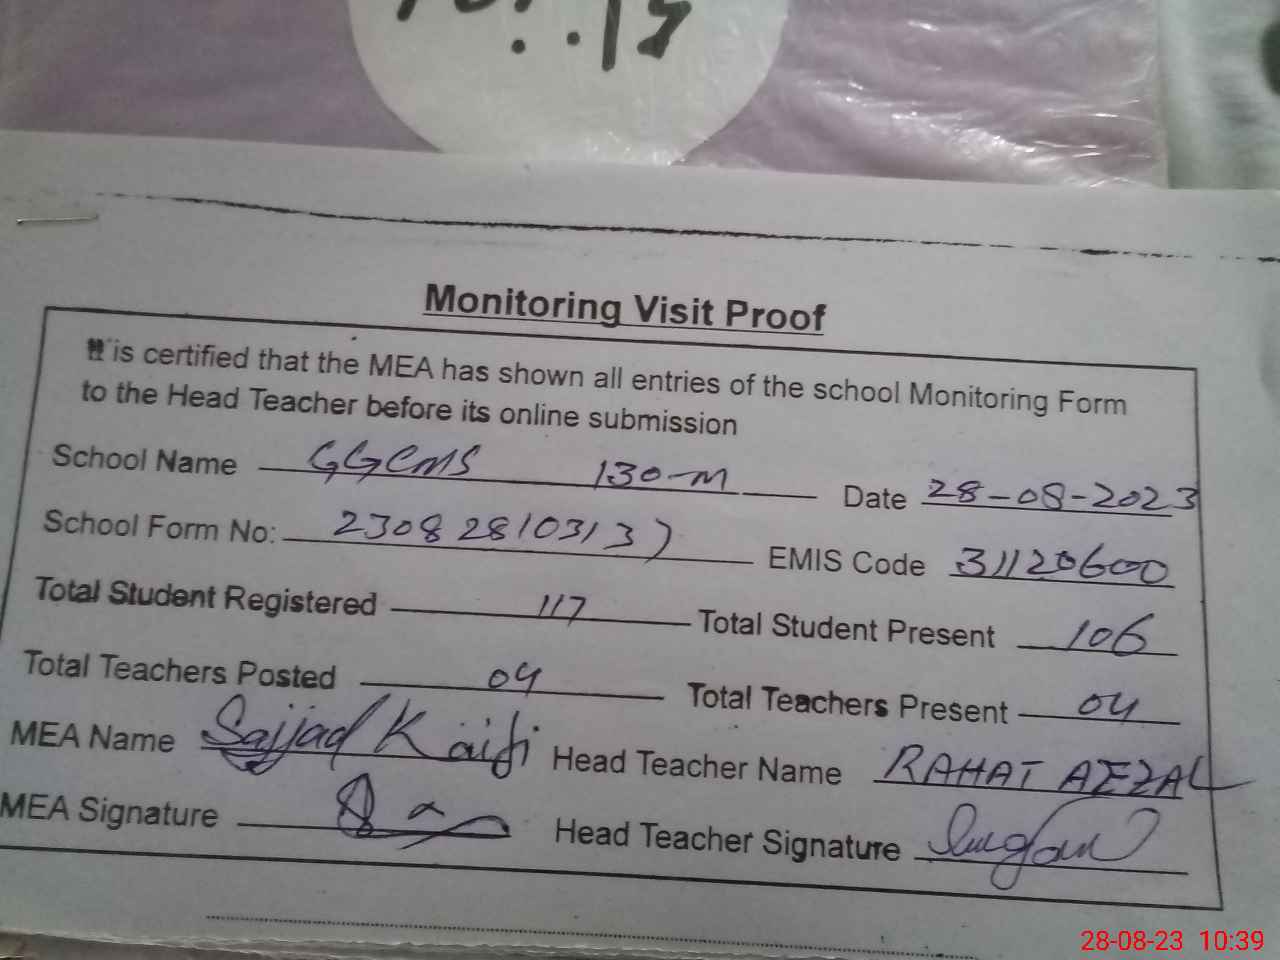 Monitoring Visit Proof
It is certified that the MEA has shown all entries of the school Monitoring Form
to the Head Teacher before its online submission
School Name GGCMS 130-M Date 28-08-2023
School Form No: 230828103137 EMIS Code 31120600
Total Student Registered 117 Total Student Present 106
Total Teachers Posted 04 Total Teachers Present 04
MEA Name Sajjad Kaifi Head Teacher Name RAHAT AFZAL
MEA Signature Head Teacher Signature
28-08-23 10:39